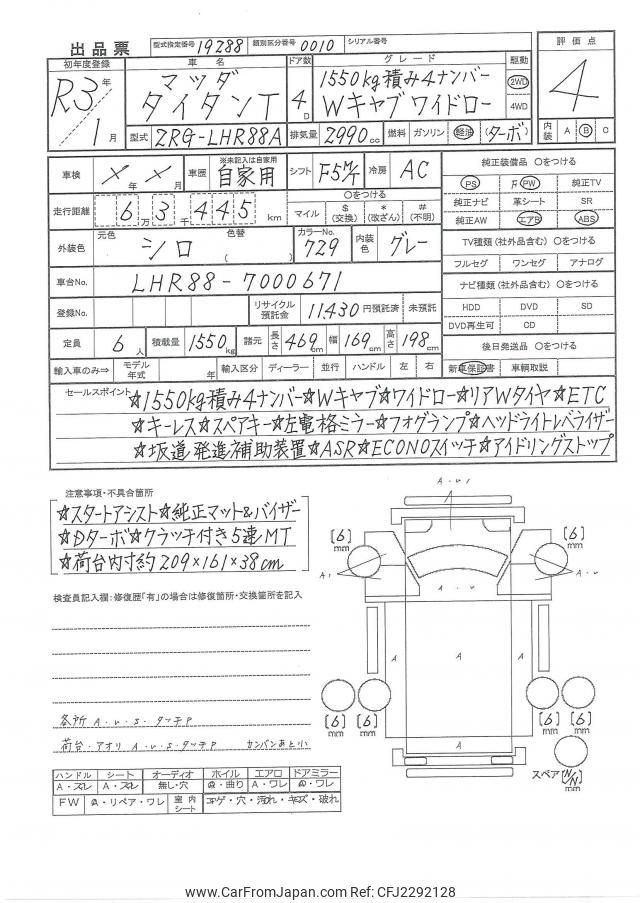 出品票 型式指定番号 19288 類別区分番号 0010 シリアル番号
初年度登録 R3年 1月
車名 マツダ タイタンT
ドア数 4D
グレード 1550kg積み4ナンバー Wキャブ ワイドロー
駆動 2WD 4WD
評価点 4
内装 A B C
型式 ZRG-LHR88A 排気量 2990cc 燃料 ガソリン 軽油 (ターボ)
車検 ×年 ×月 車歴 ※未記入は自家用 自家用 シフト F5M/T 冷房 AC
純正装備品 ○をつける
PS PW 純正TV
純正ナビ 革シート SR
純正AW エアB ABS
走行距離 63千445km
○をつける
マイル $(交換) *(改ざん) #(不明)
外装色 元色 シロ 色替 ( ) カラーNo. 729 内装色 グレー
TV種類(社外品含む) ○をつける
フルセグ ワンセグ アナログ
車台No. LHR88-7000671
ナビ種類(社外品含む) ○をつける
HDD DVD SD
DVD再生可 CD
登録No. リサイクル預託金 11430円預託済 未預託
定員 6人 積載量 1550kg 諸元 長さ 469cm 幅 169cm 高さ 198cm
後日発送品 ○をつける
新車保証書 車輌取説
輸入車のみ⇒ モデル年式 年 輸入区分 ディーラー 並行 ハンドル 左 右
セールスポイント
☆1550kg積み4ナンバー☆Wキャブ☆ワイドロー☆リアWタイヤ☆ETC
☆キーレス☆スペアキー☆左電格ミラー☆フォグランプ☆ヘッドライトレベライザー
☆坂道発進補助装置☆ASR☆ECONOスイッチ☆アイドリングストップ
注意事項・不具合箇所
☆スタートアシスト☆純正マット&バイザー
☆Dターボ☆クラッチ付き5速MT
☆荷台内寸約209×161×38cm
検査員記入欄:修復歴「有」の場合は修復箇所・交換箇所を記入
各所 A・U・S・タッチP
荷台・アオリ A・U・S・タッチP カンバンあと小
ハンドル シート オーディオ ホイル エアロ ドアミラー
A・スレ A・スレ 無し・穴 A・曲り A・ワレ A・ワレ
FW A・リペア・ワレ 室内シート コゲ・穴・汚れ・キズ・破れ
A・U1
[6]mm [6]mm
A1 A・U
A A A
[6]mm [6]mm [6]mm [6]mm
A
スペア[N/N]mm
www.CarFromJapan.com Ref: CFJ2292128